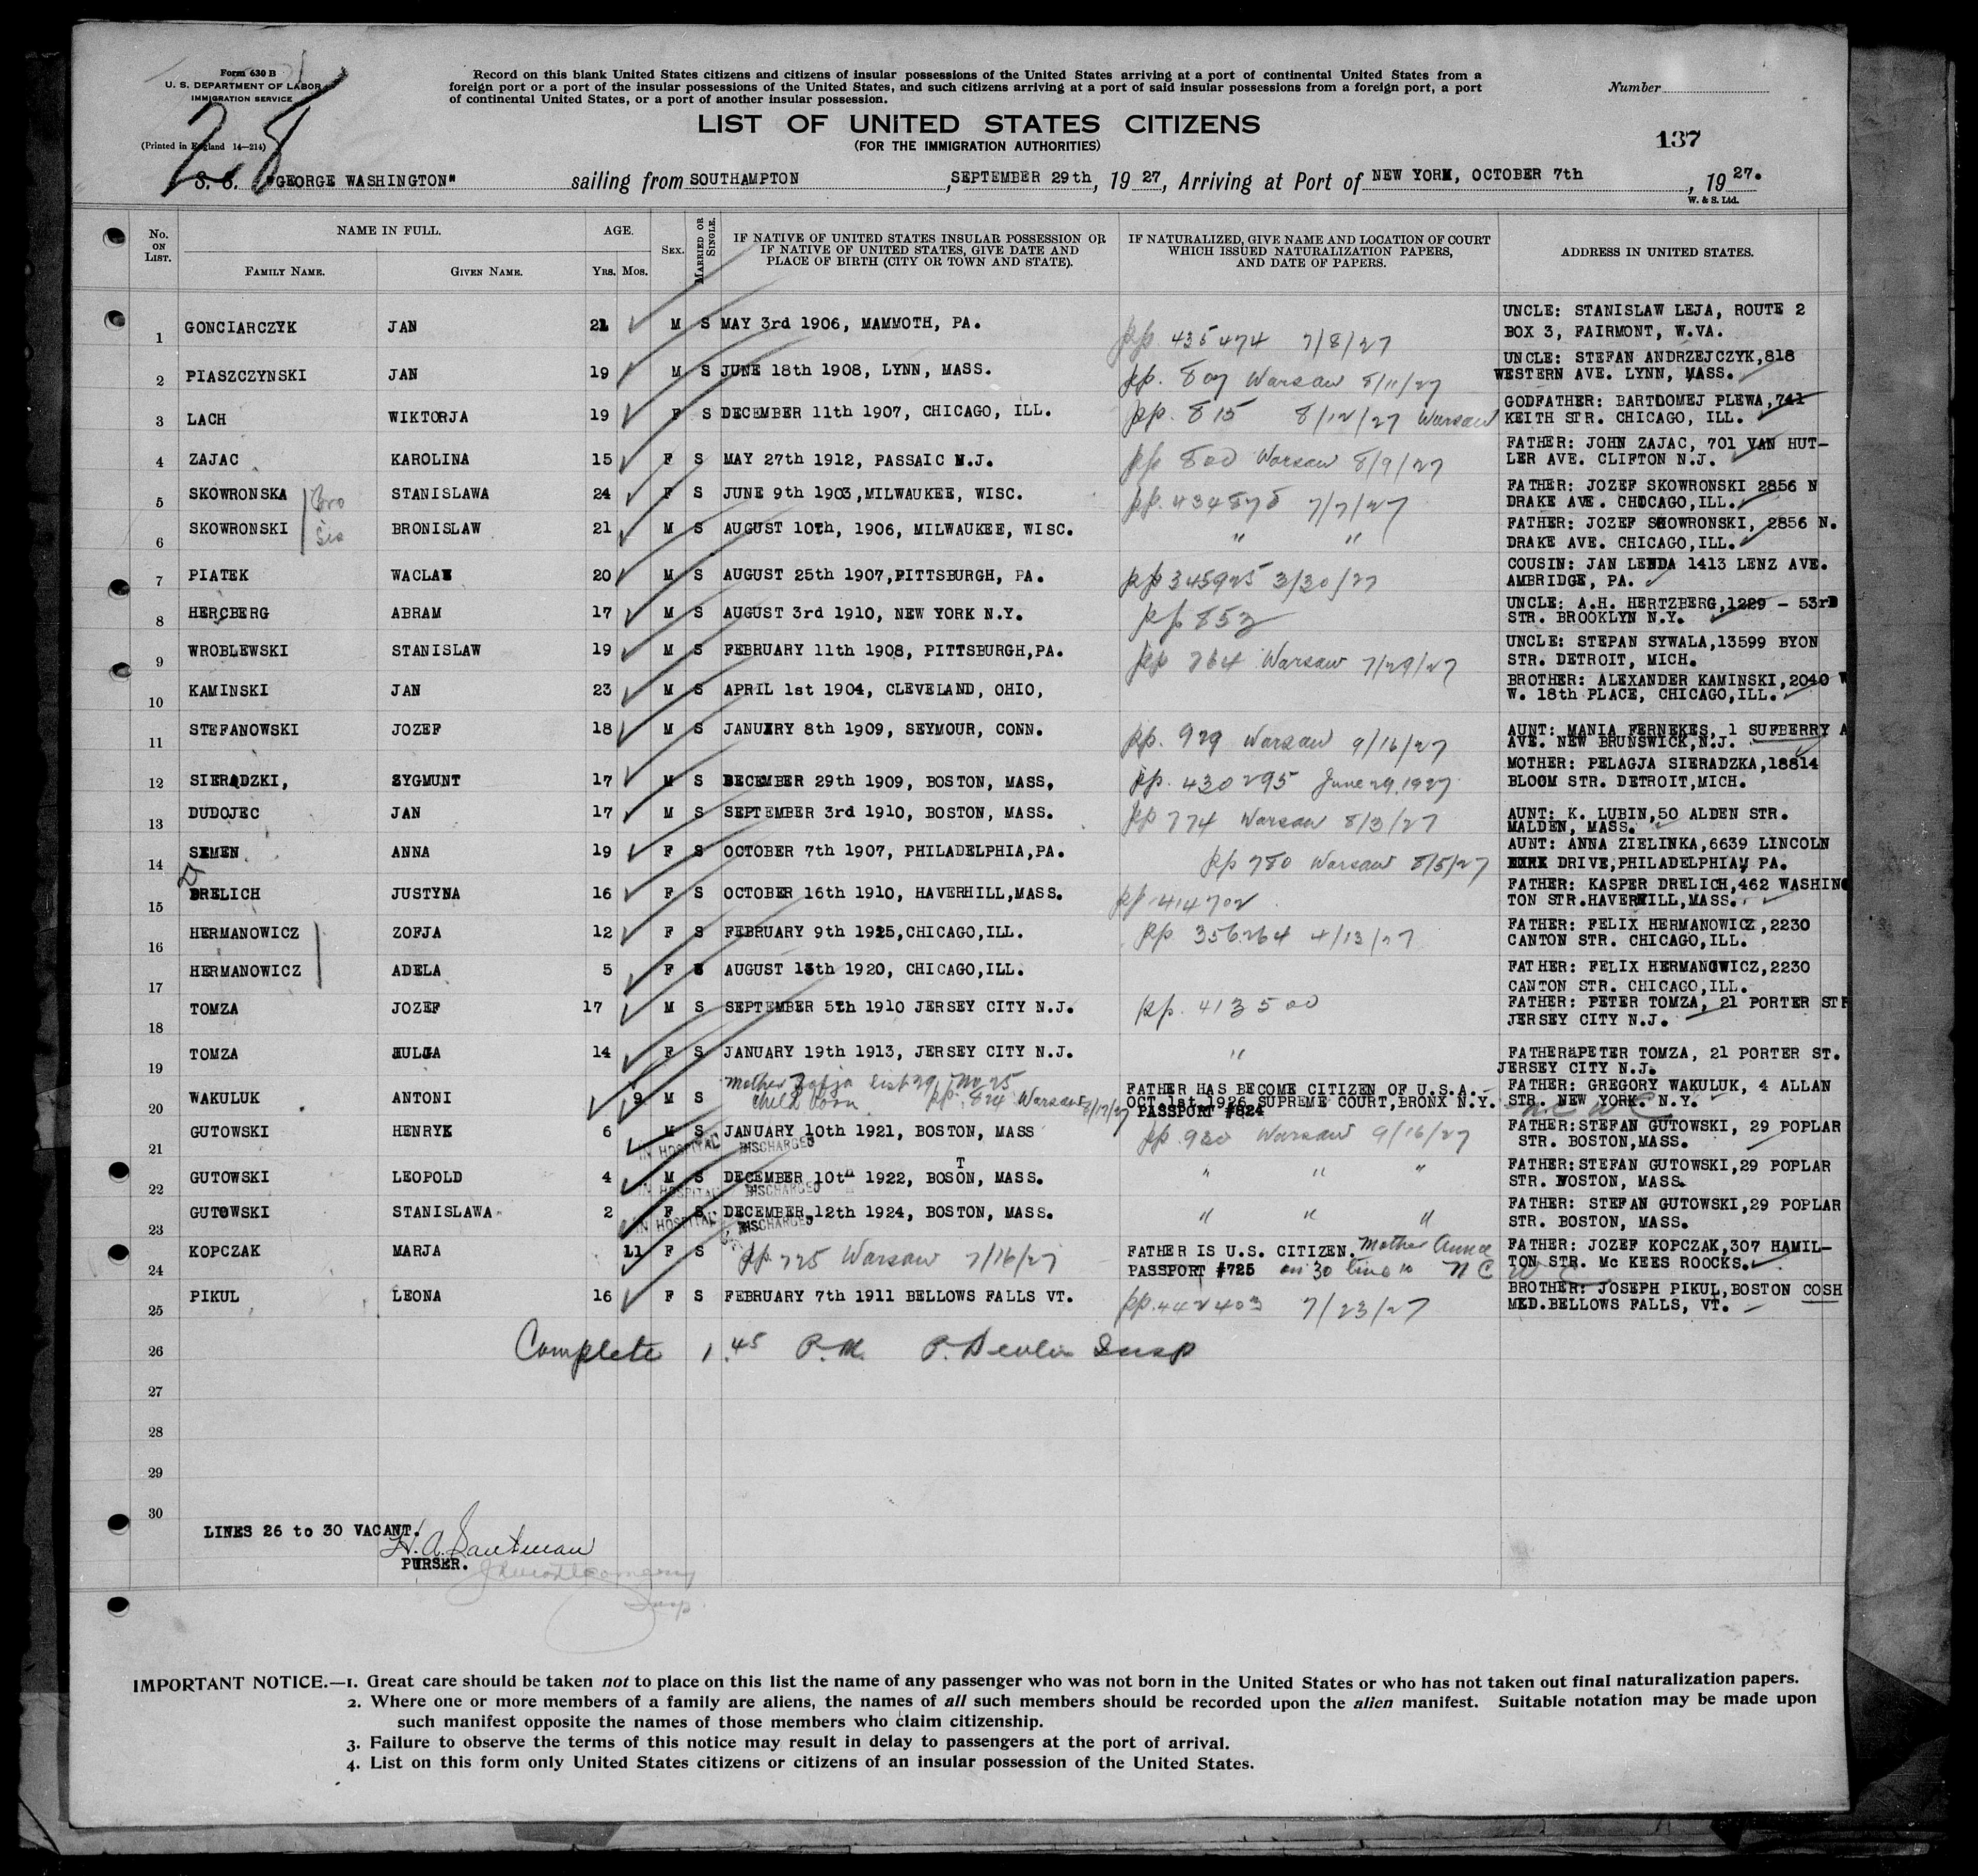 Form 630 B
U. S. DEPARTMENT OF LABOR
IMMIGRATION SERVICE
(Printed in England 14—214)
28
Record on this blank United States citizens and citizens of insular possessions of the United States arriving at a port of continental United States from a
foreign port or a port of the insular possessions of the United States, and such citizens arriving at a port of said insular possessions from a foreign port, a port
of continental United States, or a port of another insular possession.
Number
LIST OF UNITED STATES CITIZENS
(FOR THE IMMIGRATION AUTHORITIES)
137
S. S. "GEORGE WASHINGTON" sailing from SOUTHAMPTON, SEPTEMBER 29th, 1927, Arriving at Port of NEW YORK, OCTOBER 7th, 1927.
W. & S. Ltd.
No. ON LIST. NAME IN FULL. AGE. SEX. MARRIED OR SINGLE. IF NATIVE OF UNITED STATES INSULAR POSSESSION OR IF NATIVE OF UNITED STATES, GIVE DATE AND PLACE OF BIRTH (CITY OR TOWN AND STATE). IF NATURALIZED, GIVE NAME AND LOCATION OF COURT WHICH ISSUED NATURALIZATION PAPERS, AND DATE OF PAPERS. ADDRESS IN UNITED STATES.
FAMILY NAME. GIVEN NAME. YRS. MOS.
1 GONCIARCZYK JAN 21 M S MAY 3rd 1906, MAMMOTH, PA. pp 435474 7/8/27 UNCLE: STANISLAW LEJA, ROUTE 2
BOX 3, FAIRMONT, W.VA.
2 PIASZCZYNSKI JAN 19 M S JUNE 18th 1908, LYNN, MASS. pp. 807 Warsaw 8/11/27 UNCLE: STEFAN ANDRZEJCZYK,818
WESTERN AVE. LYNN, MASS.
3 LACH WIKTORJA 19 F S DECEMBER 11th 1907, CHICAGO, ILL. pp. 815 8/12/27 Warsaw GODFATHER: BARTDOMEJ PLEWA,741
KEITH STR. CHICAGO, ILL.
4 ZAJAC KAROLINA 15 F S MAY 27th 1912, PASSAIC N.J. pp 800 Warsaw 8/9/27 FATHER: JOHN ZAJAC, 701 VAN HUT-
LER AVE. CLIFTON N.J.
5 SKOWRONSKA Bro STANISLAWA 24 F S JUNE 9th 1903,MILWAUKEE, WISC. pp. 434878 7/7/27 FATHER: JOZEF SKOWRONSKI 2856 N
DRAKE AVE. CHICAGO,ILL.
6 SKOWRONSKI Sis BRONISLAW 21 M S AUGUST 10th, 1906, MILWAUKEE, WISC. " " FATHER: JOZEF SKOWRONSKI, 2856 N.
DRAKE AVE. CHICAGO,ILL.
7 PIATEK WACLAW 20 M S AUGUST 25th 1907,PITTSBURGH, PA. pp 345925 3/30/27 COUSIN: JAN LENDA 1413 LENZ AVE.
AMBRIDGE, PA.
8 HERCBERG ABRAM 17 M S AUGUST 3rd 1910, NEW YORK N.Y. pp 853 UNCLE: A.H. HERTZBERG,1229 - 53rD
STR. BROOKLYN N.Y.
9 WROBLEWSKI STANISLAW 19 M S FEBRUARY 11th 1908, PITTSBURGH,PA. pp 764 Warsaw 7/29/27 UNCLE: STEPAN SYWALA,13599 BYON
STR. DETROIT, MICH.
10 KAMINSKI JAN 23 M S APRIL 1st 1904, CLEVELAND, OHIO, BROTHER: ALEXANDER KAMINSKI,2040 W
W. 18th PLACE, CHICAGO,ILL.
11 STEFANOWSKI JOZEF 18 M S JANUARY 8th 1909, SEYMOUR, CONN. pp. 929 Warsaw 9/16/27 AUNT: MANIA FERNEKES, 1 SUFBERRY A
AVE. NEW BRUNSWICK,N.J.
12 SIERADZKI, ZYGMUNT 17 M S DECEMBER 29th 1909, BOSTON, MASS, pp. 430295 June 29,1927 MOTHER: PELAGJA SIERADZKA,18814
BLOOM STR. DETROIT,MICH.
13 DUDOJEC JAN 17 M S SEPTEMBER 3rd 1910, BOSTON, MASS. pp 774 Warsaw 8/3/27 AUNT: K. LUBIN,50 ALDEN STR.
MALDEN, MASS.
14 SEMEN ANNA 19 F S OCTOBER 7th 1907, PHILADELPHIA,PA. pp 780 Warsaw 8/5/27 AUNT: ANNA ZIELINKA,6639 LINCOLN
DRIVE,PHILADELPHIA, PA.
15 DRELICH JUSTYNA 16 F S OCTOBER 16th 1910, HAVERHILL,MASS. pp 414702 FATHER: KASPER DRELICH,462 WASHING
TON STR.HAVERHILL,MASS.
16 HERMANOWICZ ZOFJA 12 F S FEBRUARY 9th 1925,CHICAGO,ILL. pp 356264 4/13/27 FATHER: FELIX HERMANOWICZ,2230
CANTON STR. CHICAGO,ILL.
17 HERMANOWICZ ADELA 5 F S AUGUST 13th 1920, CHICAGO,ILL. FATHER: FELIX HERMANOWICZ,2230
CANTON STR. CHICAGO,ILL.
18 TOMZA JOZEF 17 M S SEPTEMBER 5th 1910 JERSEY CITY N.J. pp. 413500 FATHER: PETER TOMZA, 21 PORTER STR
JERSEY CITY N.J.
19 TOMZA JULJA 14 F S JANUARY 19th 1913, JERSEY CITY N.J. " FATHER:PETER TOMZA, 21 PORTER ST.
JERSEY CITY N.J.
20 WAKULUK ANTONI 9 M S Mother Zofja list 29, No 25
child born pp. 824 Warsaw 8/17/27
FATHER HAS BECOME CITIZEN OF U.S.A.-
OCT.1st 1926 SUPREME COURT,BRONX N.Y.
PASSPORT #824
FATHER: GREGORY WAKULUK, 4 ALLAN
STR. NEW YORK. N.Y.
N C W C
21 GUTOWSKI HENRYK 6 M S JANUARY 10th 1921, BOSTON, MASS pp. 930 Warsaw 9/16/27 FATHER:STEFAN GUTOWSKI, 29 POPLAR
STR. BOSTON,MASS.
IN HOSPITAL DISCHARGED
22 GUTOWSKI LEOPOLD 4 M S DECEMBER 10th 1922, BOSTON, MASS. " " " FATHER:STEFAN GUTOWSKI,29 POPLAR
STR. BOSTON, MASS.
IN HOSPITAL DISCHARGED
23 GUTOWSKI STANISLAWA 2 F S DECEMBER 12th 1924, BOSTON, MASS. " " " FATHER: STEFAN GUTOWSKI,29 POPLAR
STR. BOSTON, MASS.
IN HOSPITAL DISCHARGED
24 KOPCZAK MARJA 11 F S pp. 725 Warsaw 7/16/27 FATHER IS U.S. CITIZEN. Mother Anna
PASSPORT #725 on 30 line 10 N C W C
FATHER: JOZEF KOPCZAK,307 HAMIL-
TON STR. Mc KEES ROOCKS.
25 PIKUL LEONA 16 F S FEBRUARY 7th 1911 BELLOWS FALLS VT. pp. 442403 7/23/27 BROTHER: JOSEPH PIKUL,BOSTON COSH
MED.BELLOWS FALLS, VT.
26 Complete 1.45 P.M. P. Devlin Insp
27
28
29
30
LINES 26 to 30 VACANT.
PURSER.
Insp.
IMPORTANT NOTICE.—1. Great care should be taken not to place on this list the name of any passenger who was not born in the United States or who has not taken out final naturalization papers.
2. Where one or more members of a family are aliens, the names of all such members should be recorded upon the alien manifest. Suitable notation may be made upon
such manifest opposite the names of those members who claim citizenship.
3. Failure to observe the terms of this notice may result in delay to passengers at the port of arrival.
4. List on this form only United States citizens or citizens of an insular possession of the United States.